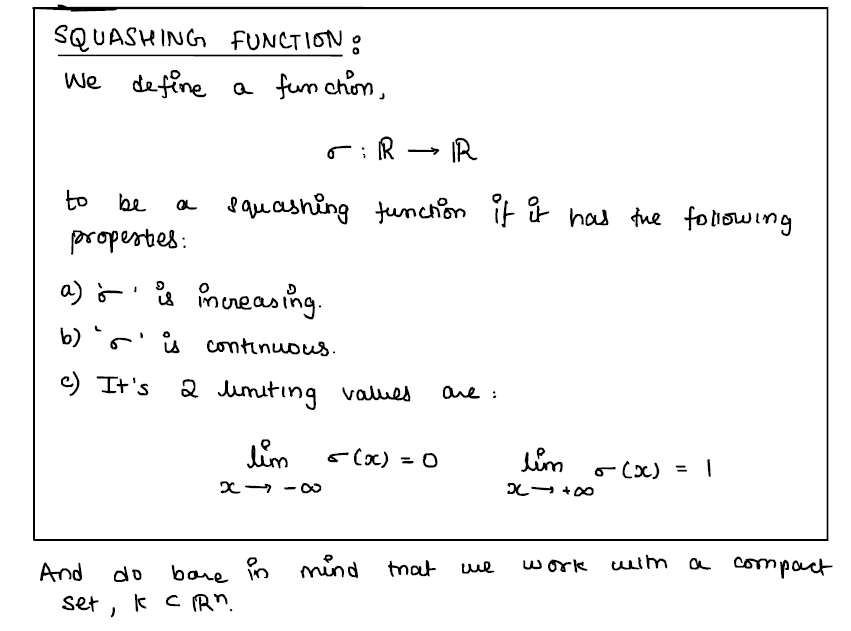 SQUASHING FUNCTION:
We define a function,
σ : ℝ → ℝ
to be a squashing function if it has the following
properties:
a) 'σ' is increasing.
b) 'σ' is continuous.
c) It's 2 limiting values are:
lim x → -∞ σ(x) = 0 lim x → +∞ σ(x) = 1
And do bare in mind that we work with a compact
set, K ⊂ ℝⁿ.